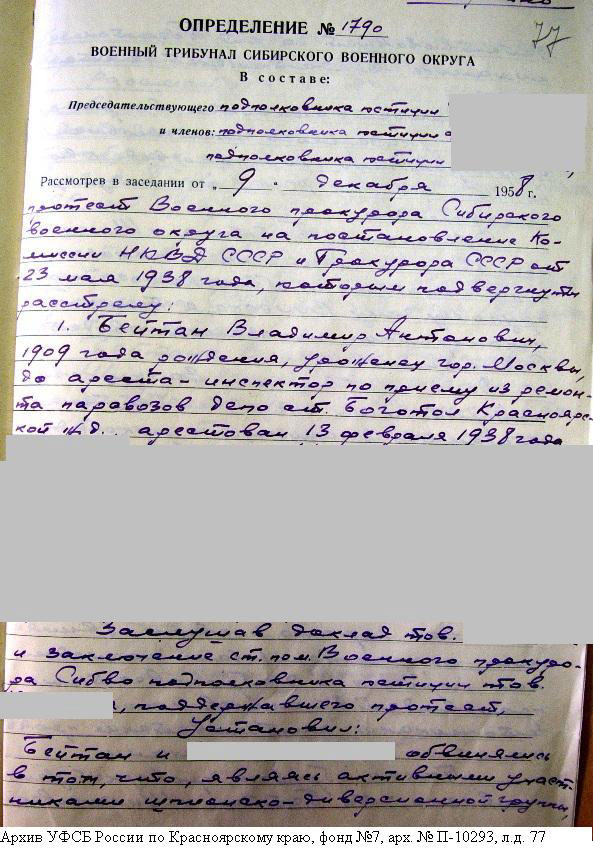 ОПРЕДЕЛЕНИЕ № 1790
77
ВОЕННЫЙ ТРИБУНАЛ СИБИРСКОГО ВОЕННОГО ОКРУГА
В составе:
Председательствующего подполковника юстиции
и членов: подполковника юстиции
подполковника юстиции
Рассмотрев в заседании от „ 9 " декабря 1958 г.
протест Военного прокурора Сибирского
военного округа на постановление Ко-
миссии НКВД СССР и Прокурора СССР от
23 мая 1938 года, которым подвергнуты
расстрелу:
1. Бейтан Владимир Антонович,
1909 года рождения, уроженец гор. Москвы,
до ареста - инспектор по приему из ремон-
та паровозов депо ст. Боготол Краснояр-
ской ж.д. арестован 13 февраля 1938 года
Заслушав доклад тов.
и заключение ст. пом. Военного прокуро-
ра СибВО подполковника юстиции тов.
, поддержавшего протест,
Установил:
Бейтан и обвинялись
в том, что, являясь активными участ-
никами шпионско-диверсионной группы,
Архив УФСБ России по Красноярскому краю, фонд №7, арх. № П-10293, л.д. 77